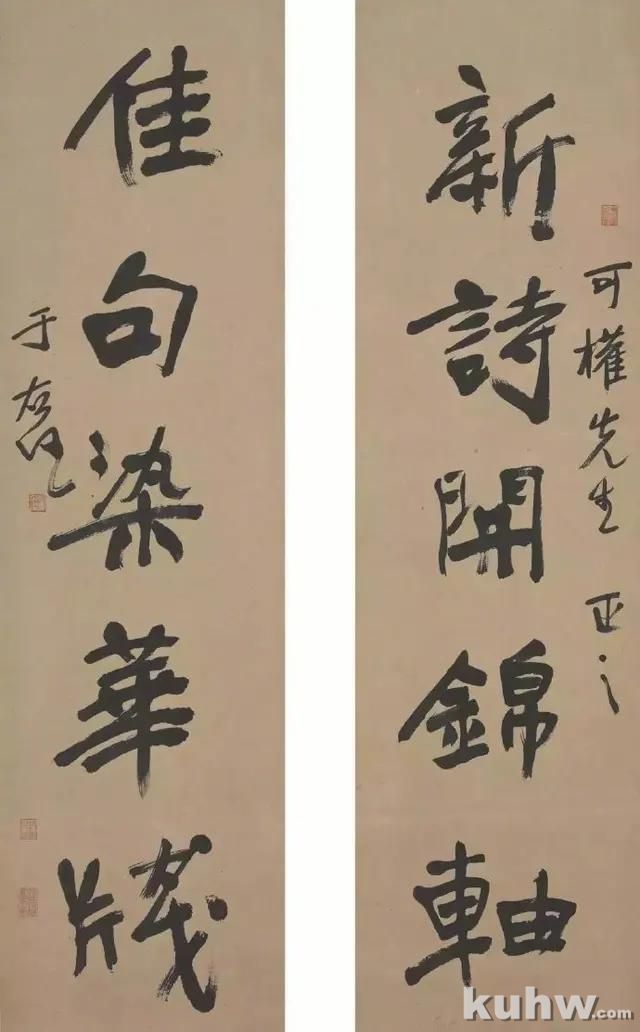 可權先生 正之
新詩開錦軸
佳句染華牋
于右任
kuhw.com